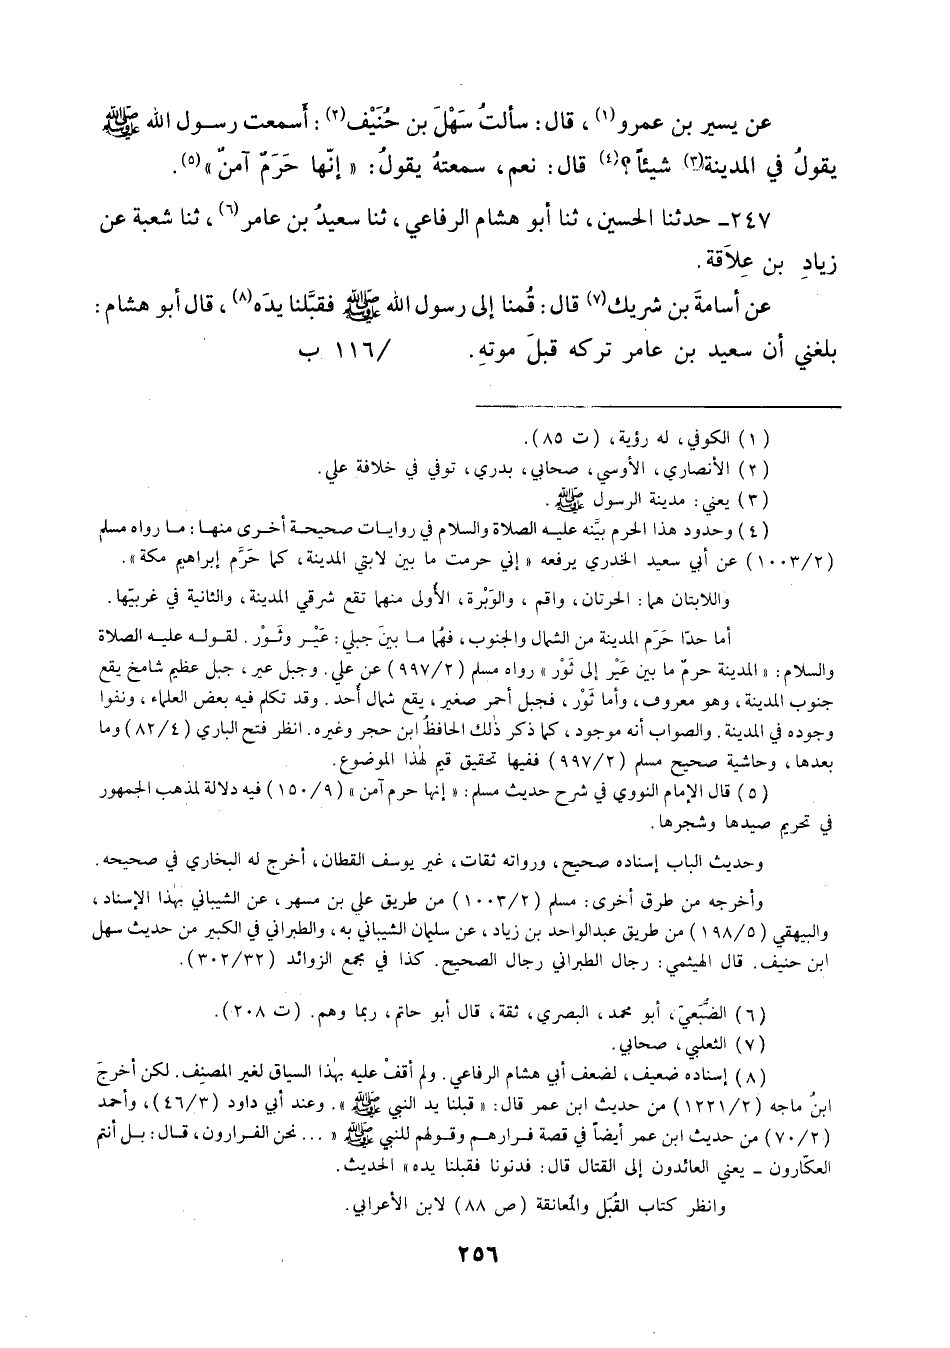 عن يسير بن عمرو(١)، قال: سألتُ سَهْلَ بن حُنَيْف(٢): أَسمعت رسول الله ﷺ
يقولُ في المدينة(٣) شيئاً؟(٤) قال: نعم، سمعتهُ يقولُ: « إنّها حَرَمٌ آمنٌ »(٥).
٢٤٧ـ حدثنا الحسين، ثنا أبو هشام الرفاعي، ثنا سعيدُ بن عامر(٦)، ثنا شعبة عن
زيادِ بن عِلَاقة.
عن أسامةَ بن شريك(٧) قال: قُمنا إلى رسول الله ﷺ فقبَّلنا يدَه(٨)، قال أبو هشام:
بلغني أن سعيد بن عامر تركه قبلَ موتهِ. /١١٦ ب
(١) الكوفي، له رؤية، (ت ٨٥).
(٢) الأنصاري، الأوسي، صحابي، بدري، توفي في خلافة علي.
(٣) يعني: مدينة الرسول ﷺ.
(٤) وحدود هذا الحرم بيَّنه عليه الصلاة والسلام في روايات صحيحة أخرى منها: ما رواه مسلم
(١٠٠٣/٢) عن أبي سعيد الخدري يرفعه « إني حرمت ما بين لابتي المدينة، كما حَرَّم إبراهيم مكة ».
واللابتان هما: الحرتان، واقم، والوَبْرة، الأولى منهما تقع شرقي المدينة، والثانية في غربيّها.
أما حدّا حَرَم المدينة من الشمال والجنوب، فهُما ما بينَ جبلي: عَيْر وثَوْر. لقوله عليه الصلاة
والسلام: « المدينة حرمٌ ما بين عَيْر إلى ثَوْر » رواه مسلم (٩٩٧/٢) عن علي. وجبل عير، جبل عظيم شامخ يقع
جنوب المدينة، وهو معروف، وأما ثَوْر، فجبل أحمر صغير، يقع شمال أُحد. وقد تكلم فيه بعض العلماء، ونفوا
وجوده في المدينة. والصواب أنه موجود، كما ذكر ذٰلك الحافظُ ابن حجر وغيره. انظر فتح الباري (٨٢/٤) وما
بعدها، وحاشية صحيح مسلم (٩٩٧/٢) ففيها تحقيق قيم لهٰذا الموضوع.
(٥) قال الإمام النووي في شرح حديث مسلم: « إنها حرم آمن » (١٥٠/٩) فيه دلالة لمذهب الجمهور
في تحريم صيدها وشجرها.
وحديث الباب إسناده صحيح، ورواته ثقات، غير يوسف القطان، أخرج له البخاري في صحيحه.
وأخرجه من طرق أخرى: مسلم (١٠٠٣/٢) من طريق علي بن مسهر، عن الشيباني بهٰذا الإسناد،
والبيهقي (١٩٨/٥) من طريق عبدالواحد بن زياد، عن سليمان الشيباني به، والطبراني في الكبير من حديث سهل
ابن حنيف. قال الهيثمي: رجال الطبراني رجال الصحيح. كذا في مجمع الزوائد (٣٠٢/٣٢).
(٦) الضُّبَعيّ، أبو محمد، البصري، ثقة، قال أبو حاتم، ربما وهم. (ت ٢٠٨).
(٧) الثعلبي، صحابي.
(٨) إسناده ضعيف، لضعف أبي هشام الرفاعي. ولم أقفْ عليه بهٰذا السياق لغير المصنِف. لكن أخرجَ
ابنُ ماجه (١٢٢١/٢) من حديث ابن عمر قال: « قبلنا يد النبي ﷺ ». وعند أبي داود (٤٦/٣)، وأحمد
(٧٠/٢) من حديث ابن عمر أيضاً في قصة فرارهم وقولهم للنبي ﷺ « ... نحن الفرارون، قال: بل أنتم
العكّارون ـ يعني العائدون إلى القتال قال: فدنونا فقبلنا يده » الحديث.
وانظر كتاب القُبَل والمُعانقة (ص ٨٨) لابن الأعرابي.
٢٥٦